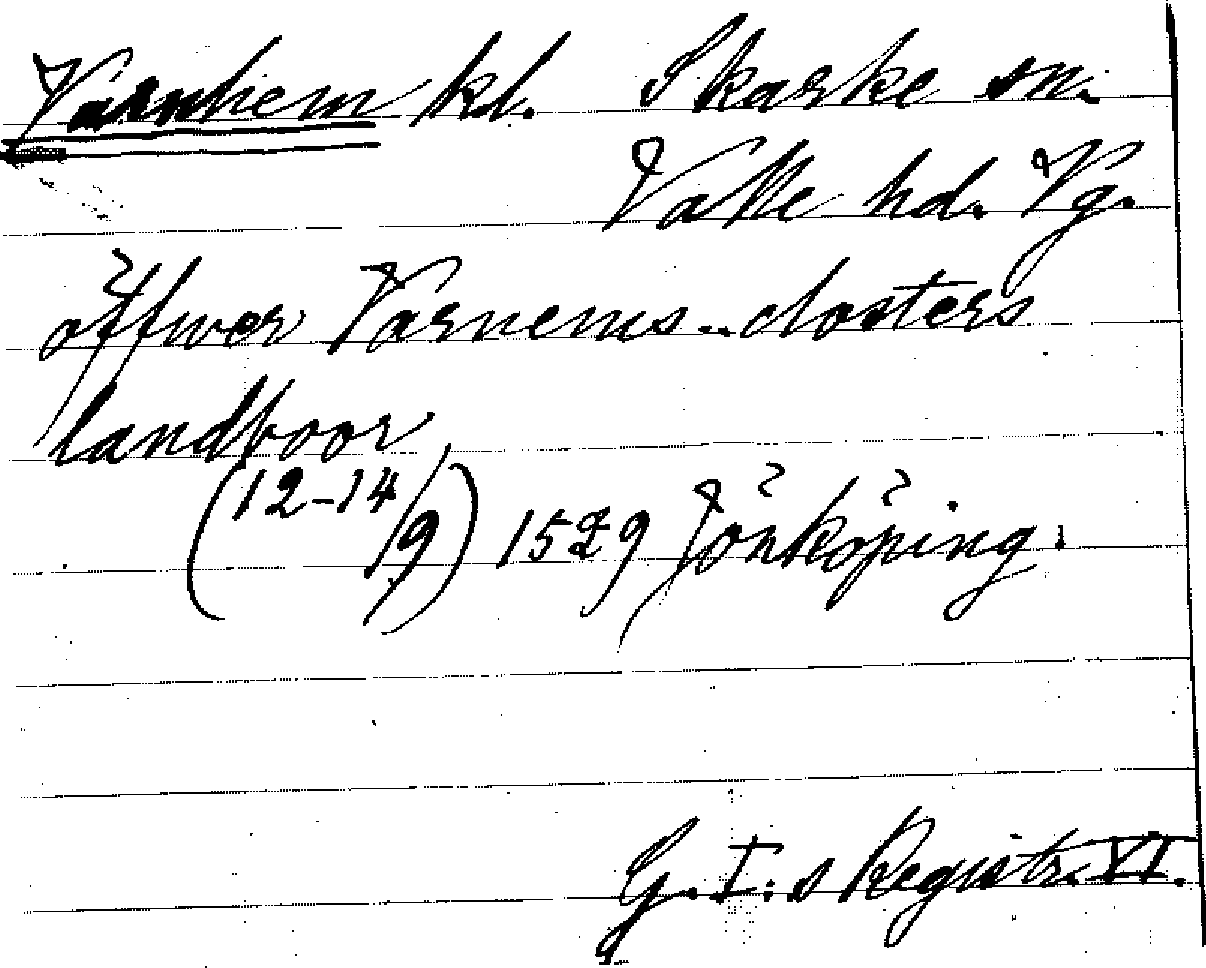 Varnhem kl. Skarke sn.
Valle hd. Vg.
öffwer Varnems-closters
landboor
(12-14/9) 1529 Jönköping.
G. I:s Registr. VI.